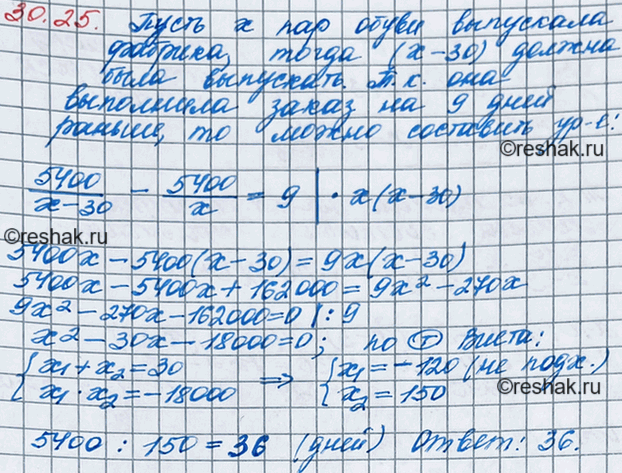 30.25. Пусть x пар обуви выпускала
фабрика, тогда (x-30) должна
была выпускать. Т.к. она
выполнила заказ на 9 дней
раньше, то можно составить ур-е:
©reshak.ru
5400/(x-30) - 5400/x = 9 | · x(x-30)
©reshak.ru
5400x - 5400(x-30) = 9x(x-30)
5400x - 5400x + 162000 = 9x² - 270x
9x² - 270x - 162000 = 0 |:9
x² - 30x - 18000 = 0; по Т Виета:
{x₁ + x₂ = 30 ⇒ {x₁ = -120 (не подх.)
{x₁ · x₂ = -18000 {x₂ = 150
5400 : 150 = 36 (дней) Ответ: 36.
©reshak.ru